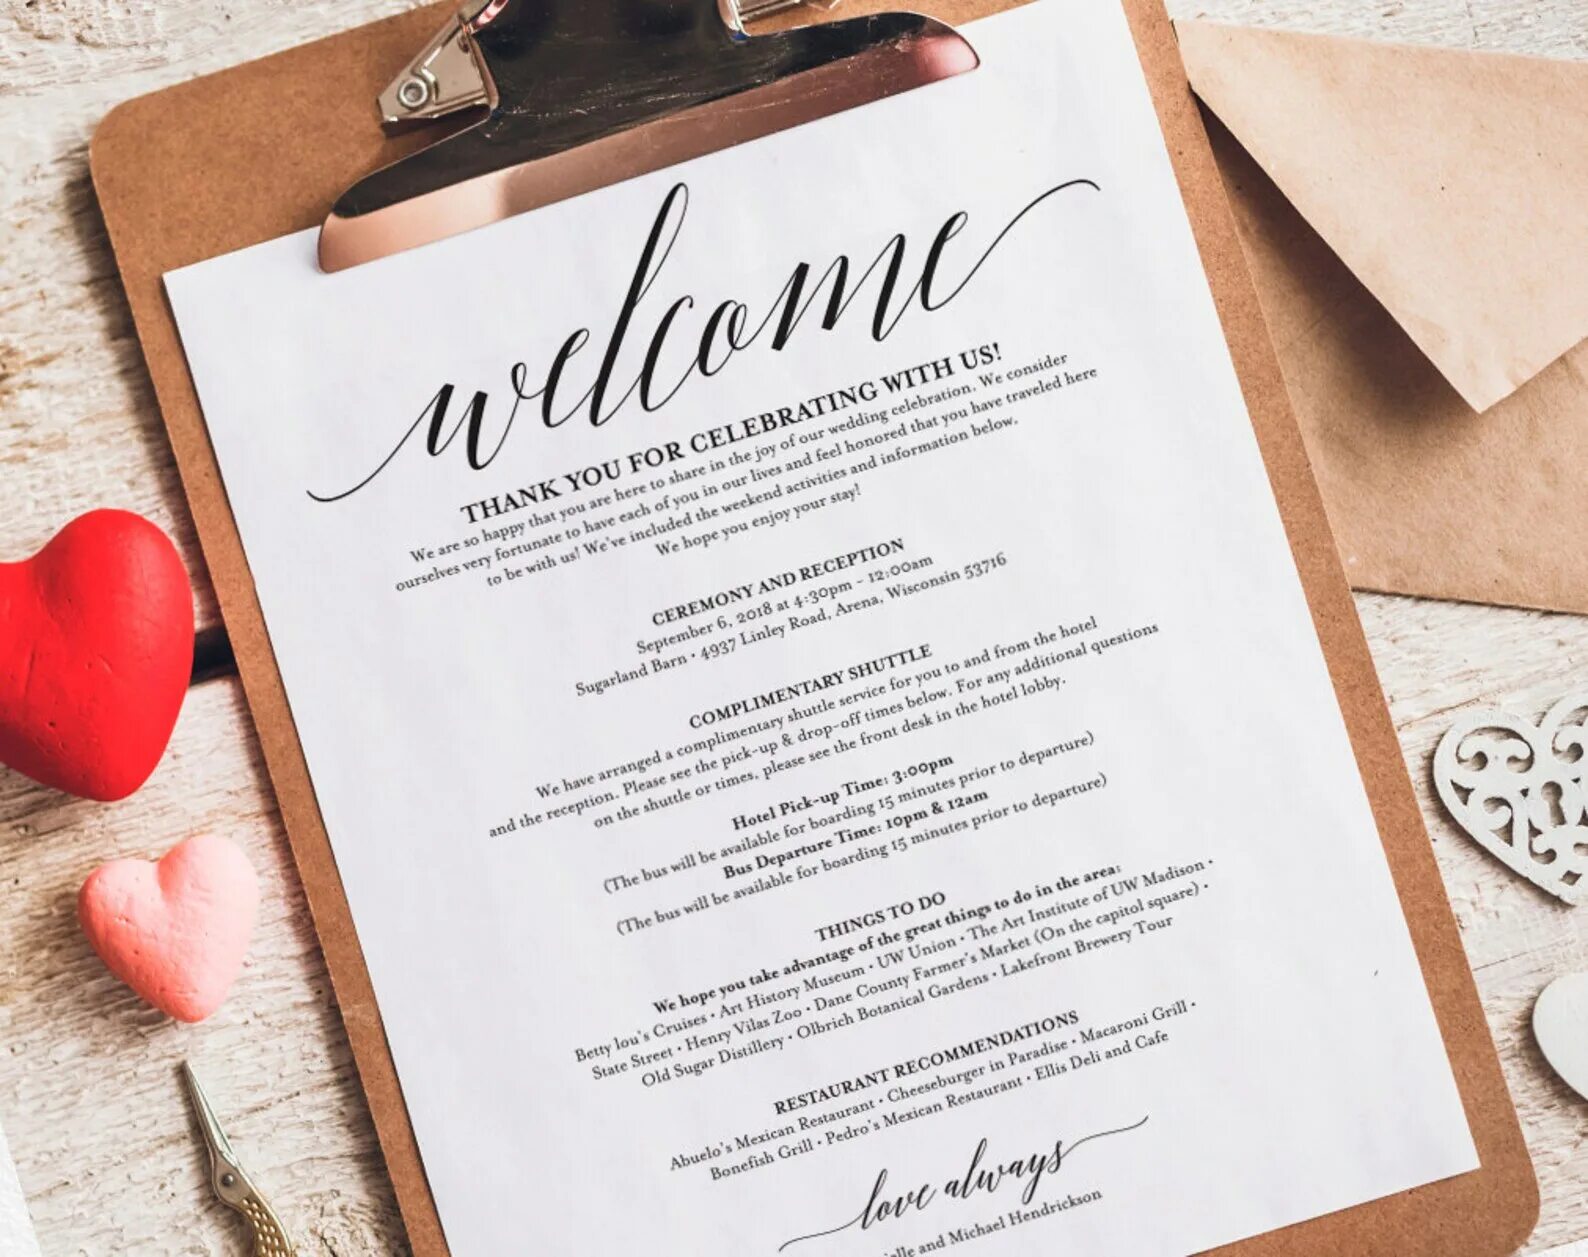 welcome
THANK YOU FOR CELEBRATING WITH US!
We are so happy that you are here to share in the joy of our wedding celebration. We consider
ourselves very fortunate to have each of you in our lives and feel honored that you have traveled here
to be with us! We've included the weekend activities and information below.
We hope you enjoy your stay!
CEREMONY AND RECEPTION
September 6, 2018 at 4:30pm - 12:00am
Sugarland Barn • 4937 Linley Road, Arena, Wisconsin 53716
COMPLIMENTARY SHUTTLE
We have arranged a complimentary shuttle service for you to and from the hotel
and the reception. Please see the pick-up & drop-off times below. For any additional questions
on the shuttle or times, please see the front desk in the hotel lobby.
Hotel Pick-up Time: 3:00pm
(The bus will be available for boarding 15 minutes prior to departure)
Bus Departure Time: 10pm & 12am
(The bus will be available for boarding 15 minutes prior to departure)
THINGS TO DO
We hope you take advantage of the great things to do in the area:
Betty lou's Cruises • Art History Museum • UW Union • The Art Institute of UW Madison •
State Street • Henry Vilas Zoo • Dane County Farmer's Market (On the capitol square) •
Old Sugar Distillery • Olbrich Botanical Gardens • Lakefront Brewery Tour
RESTAURANT RECOMMENDATIONS
Abuelo's Mexican Restaurant • Cheeseburger in Paradise • Macaroni Grill •
Bonefish Grill • Pedro's Mexican Restaurant • Ellis Deli and Cafe
love always
and Michael Hendrickson